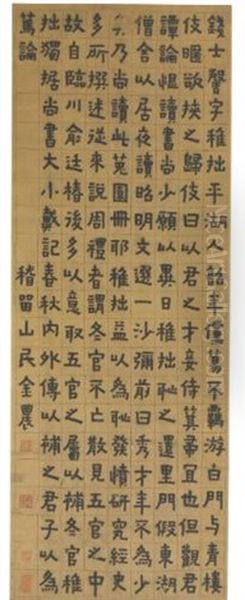 錢士馨字稚拙平湖人韶年儁不羈游白門與青樓
伎暱欲挾之歸伎曰以君之才妾侍箕帚宜也但觀君
譚論愠讀書尚少願以異日稚拙恥之還里門假東湖
僧舍以居夜讀昭明文選一沙彌前曰秀才年不為少
矣乃尚讀此兎園冊耶稚拙益以為恥發憤研究經史
多所撰述從來說周禮者謂冬官不亡散見五官之中
故自臨川俞廷椿後多以意取五官之屬以補冬官稚
拙獨据尚書大小戴記春秋內外傳以補之君子以為
篤論
稽留山民金農